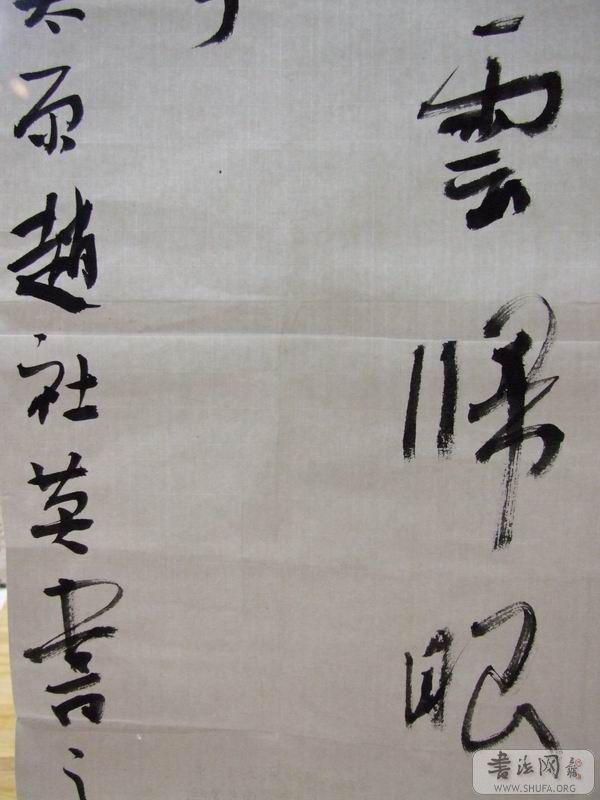 雲帰眼
原趙社英書
書法网
WWW.SHUFA.ORG